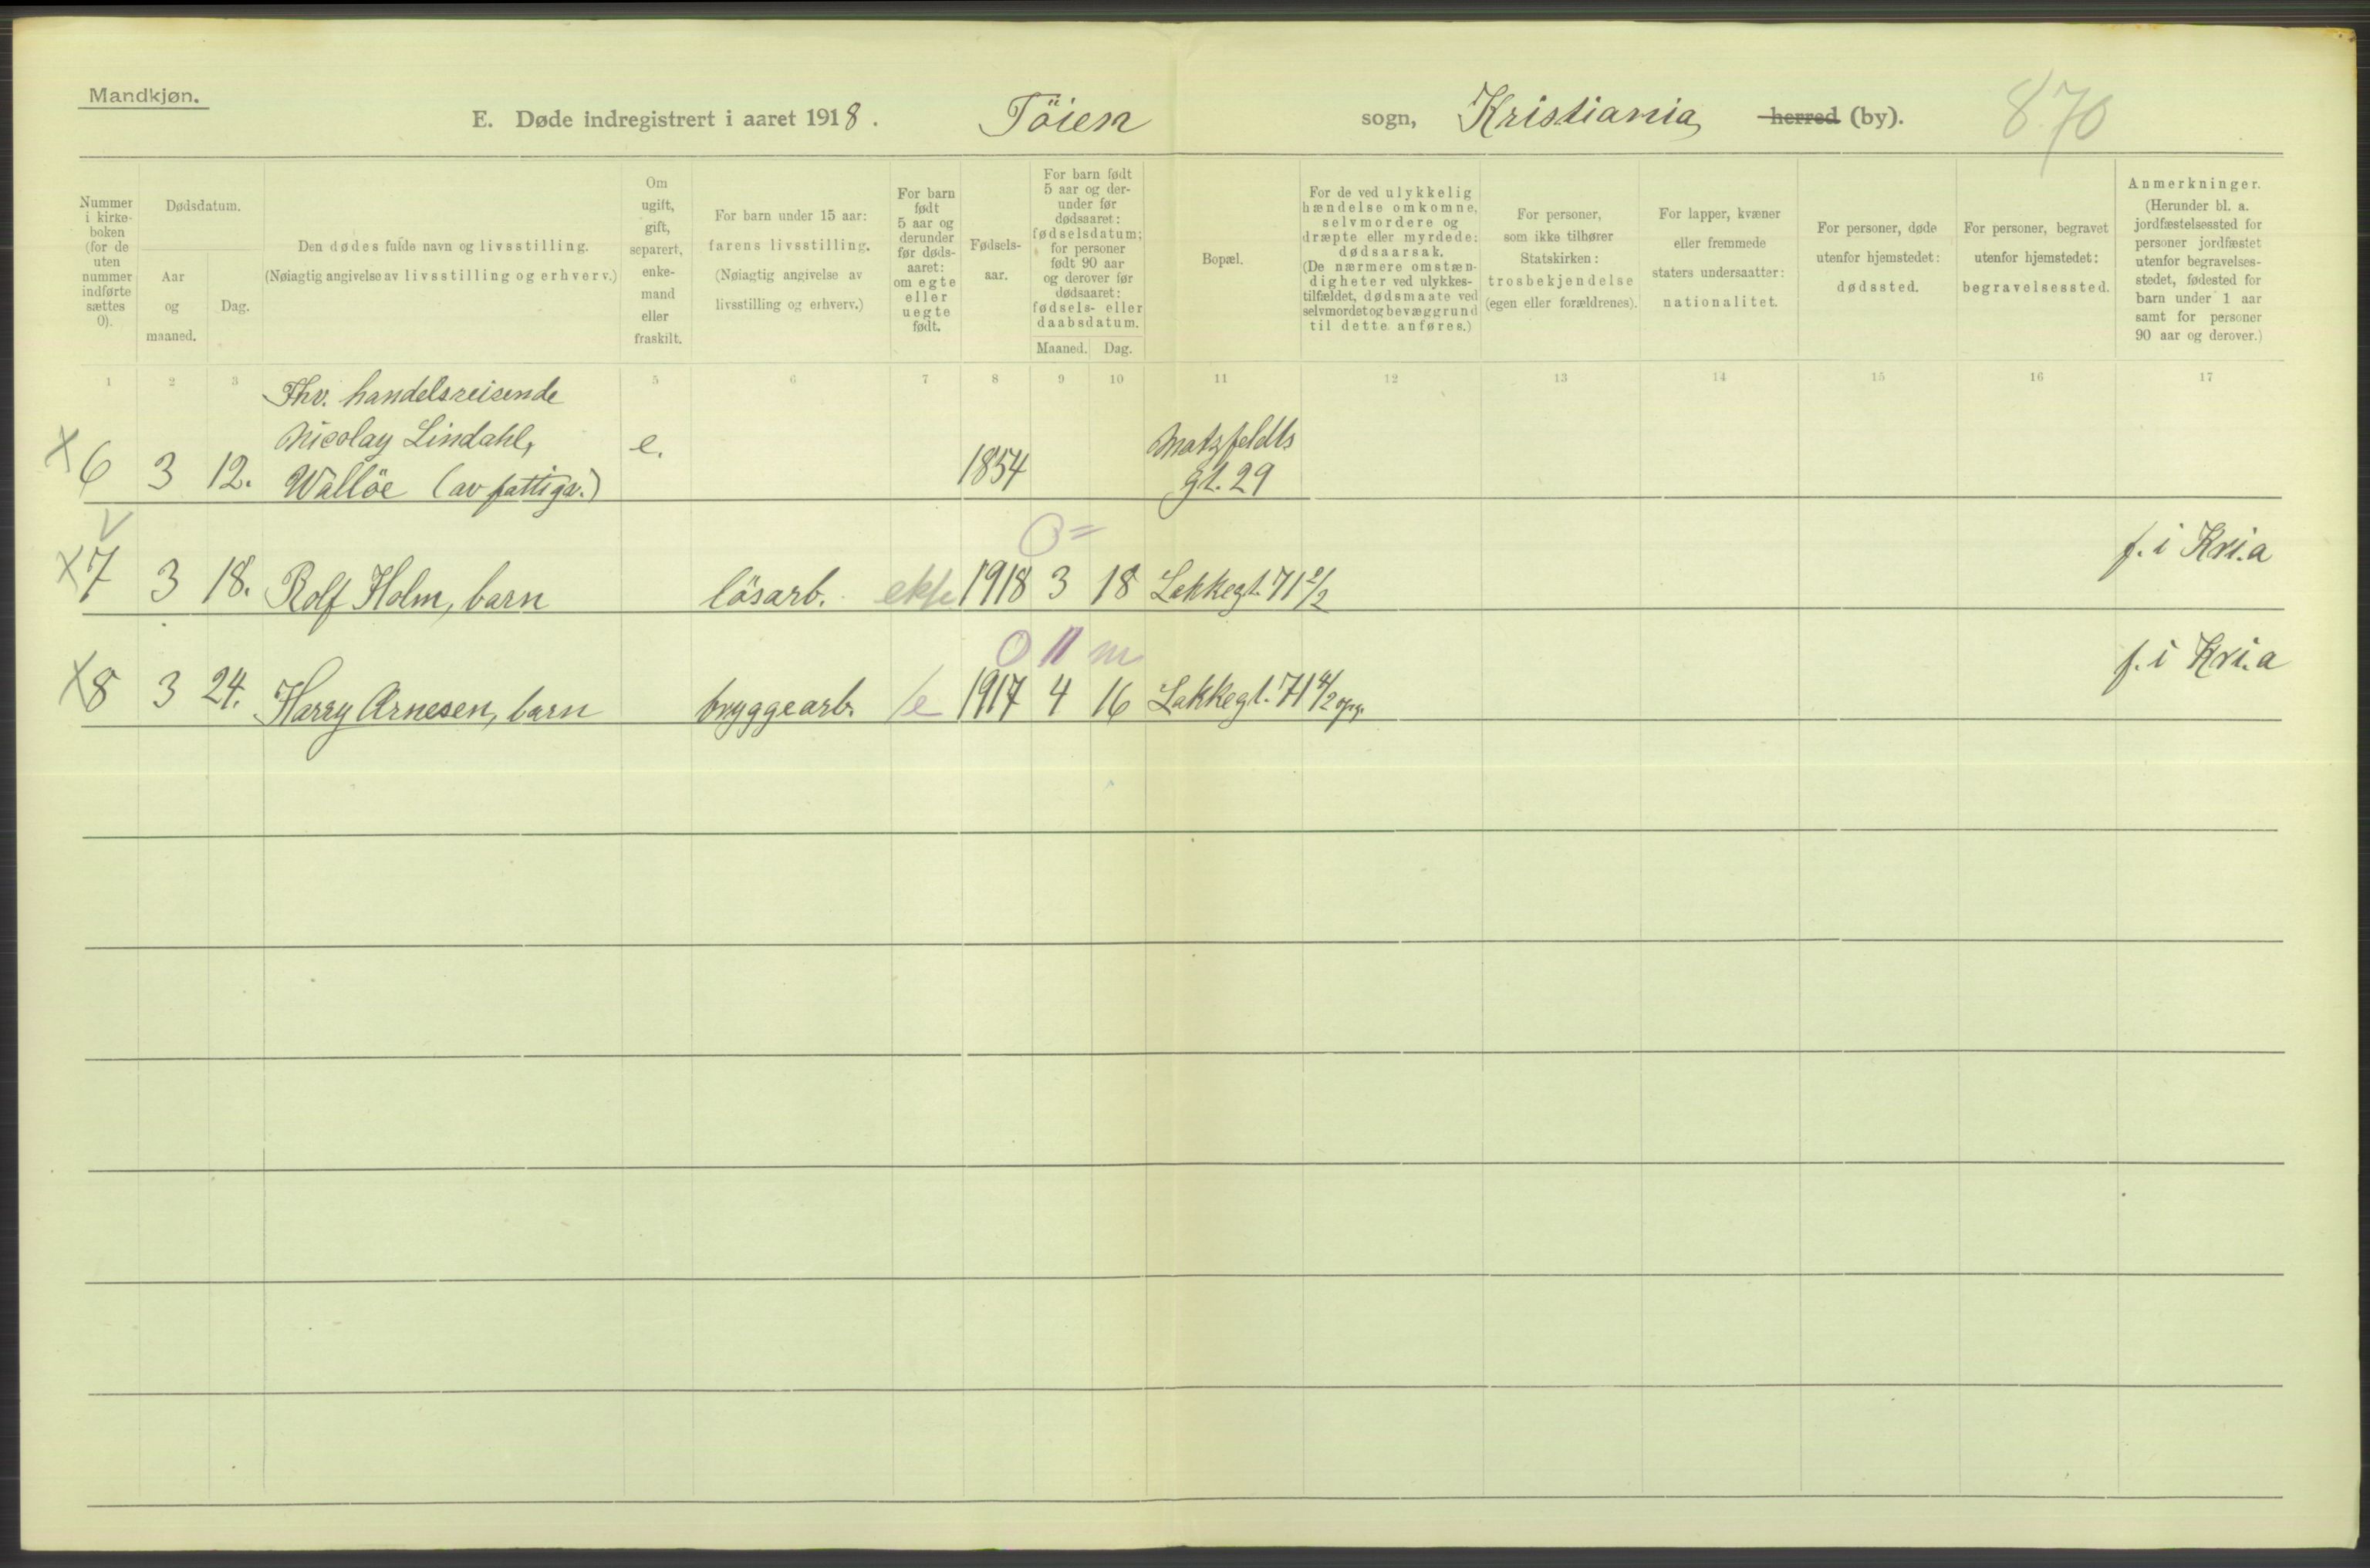 Mandkjøn.
E. Døde indregistrert i aaret 1918. Töien sogn, Kristiania herred (by). 870
Nummer i kirke-boken (for de uten nummer indførte sættes 0).
Dødsdatum.
Aar og maaned.
Dag.
Den dødes fulde navn og livsstilling.
(Nøiagtig angivelse av livsstilling og erhverv.)
Om ugift, gift, separert, enke-mand eller fraskilt.
For barn under 15 aar: farens livsstilling. (Nøiagtig angivelse av livsstilling og erhverv.)
For barn født 5 aar og derunder før døds-aaret: om egte eller uegte født.
Fødsels-aar.
For barn født 5 aar og der-under før dødsaaret: fødselsdatum; for personer født 90 aar og derover før dødsaaret: fødsels- eller daabsdatum.
Maaned. Dag.
Bopæl.
For de ved ulykkelig hændelse omkomne, selvmordere og dræpte eller myrdede: dødsaarsak. (De nærmere omstæn-digheter ved ulykkes-tilfældet, dødsmaate ved selvmordet og bevæggrund til dette anføres.)
For personer, som ikke tilhører Statskirken: trosbekjendelse (egen eller forældrenes).
For lapper, kvæner eller fremmede staters undersaatter: nationalitet.
For personer, døde utenfor hjemstedet: dødssted.
For personer, begravet utenfor hjemstedet: begravelsessted.
Anmerkninger. (Herunder bl. a. jordfæstelsessted for personer jordfæstet utenfor begravelses-stedet, fødested for barn under 1 aar samt for personer 90 aar og derover.)
1 2 3 5 6 7 8 9 10 11 12 13 14 15 16 17
Fhv. handelsreisende
Nicolay Lindahl, e. Motzfeldts
x 6 3 12. Wallöe (av fattigv.) 1854 gt. 29
0 =
x 7 3 18. Rolf Holm, barn lösarb. ekte 1918 3 18 Lakkegt. 71 f. i Kri.a
0 11 m
x 8 3 24. Harry Arnesen, barn bryggearb. e 1917 4 16 Lakkegt. 71 4/2 opg. f. i Kri.a